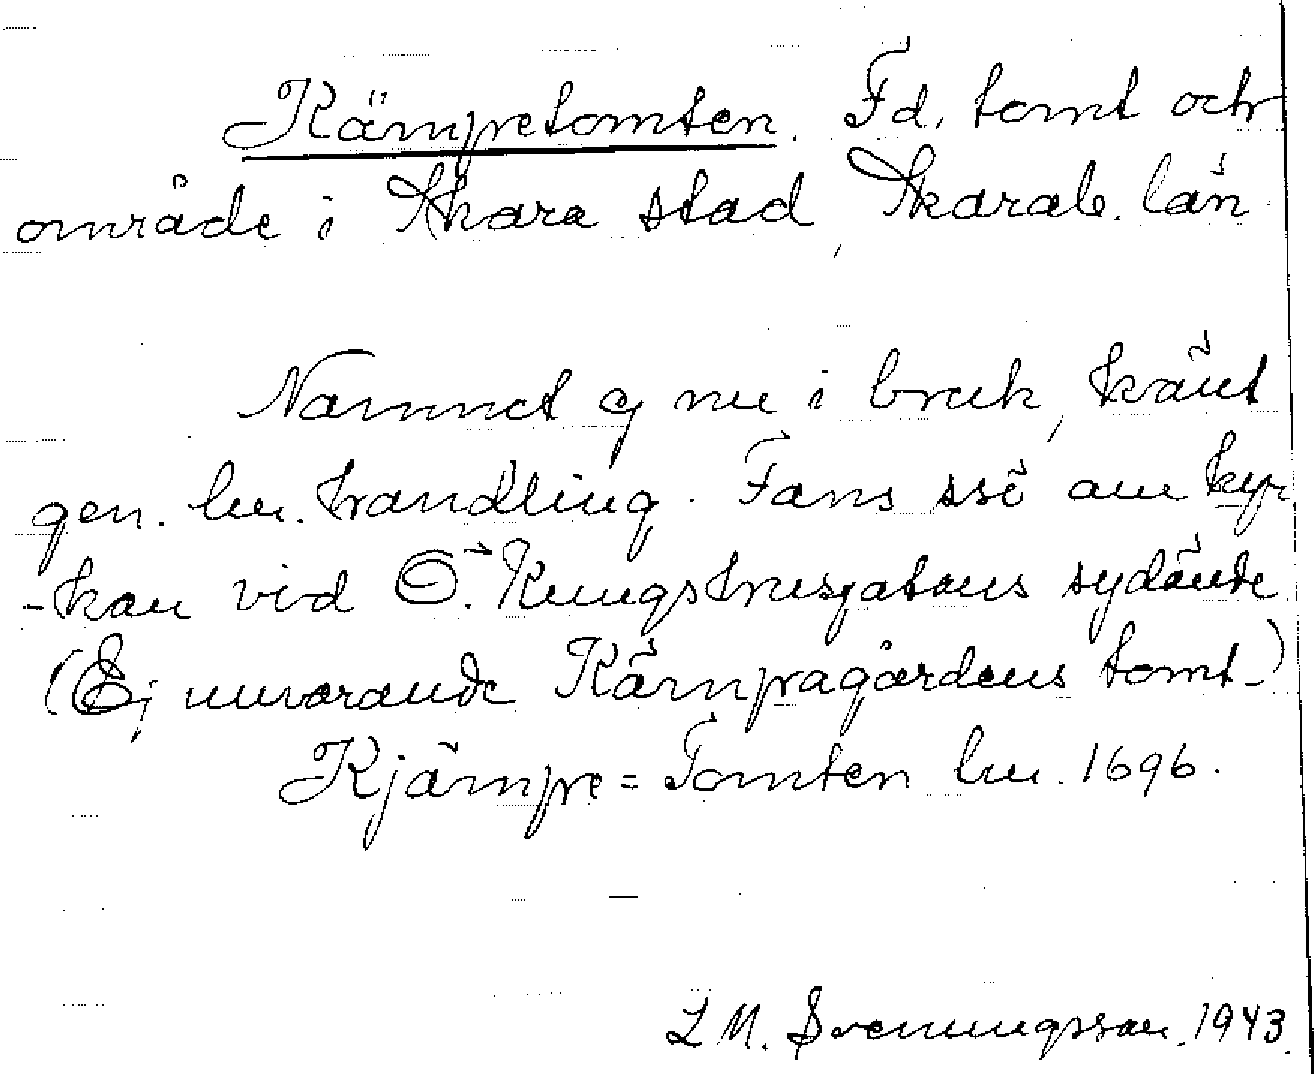 Kämpetomten. Fd. tomt och
område i Skara stad, Skarab. län
Namnet ej nu i bruk, känt
gen. lm. handling. Fans ssö om kyr
-kan vid Ö. Kungshusgatans sydände
(Ej nuvarande Kämpagårdens tomt-)
Kjämpe=Tomten lm. 1696.
L M. Svenungsson. 1943.